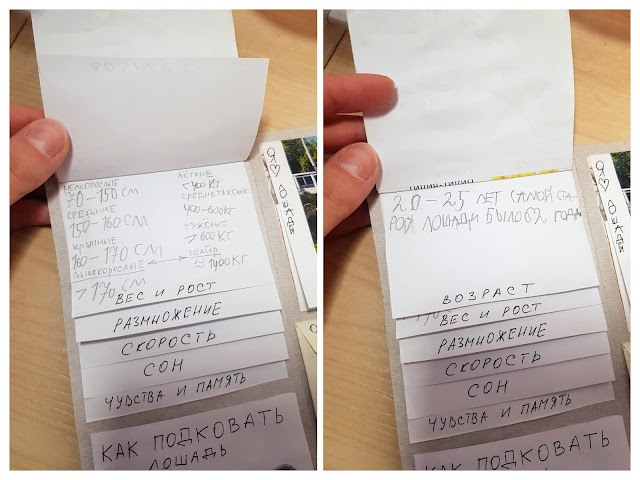 МЕЛКОРОСЛЫЕ
70-150 СМ
СРЕДНИЕ
150-160 СМ
КРУПНЫЕ
160-170 СМ
ВЫСОКОРОСЛЫЕ
>170 СМ
ЛЁГКИЕ
<400 КГ
СРЕДНЕТЯЖЁЛЫЕ
400-600 КГ
ТЯЖЁЛЫЕ
>600 КГ
ШАЙР
≈1400 КГ
ВЕС И РОСТ
РАЗМНОЖЕНИЕ
СКОРОСТЬ
СОН
ЧУВСТВА И ПАМЯТЬ
КАК ПОДКОВАТЬ
ЛОШАДЬ
20-25 ЛЕТ САМОЙ СТА-
РОЙ ЛОШАДИ БЫЛО 62 ГОДА
ВОЗРАСТ
ВЕС И РОСТ
РАЗМНОЖЕНИЕ
СКОРОСТЬ
СОН
ЧУВСТВА И ПАМЯТЬ
КАК ПОДКОВАТЬ